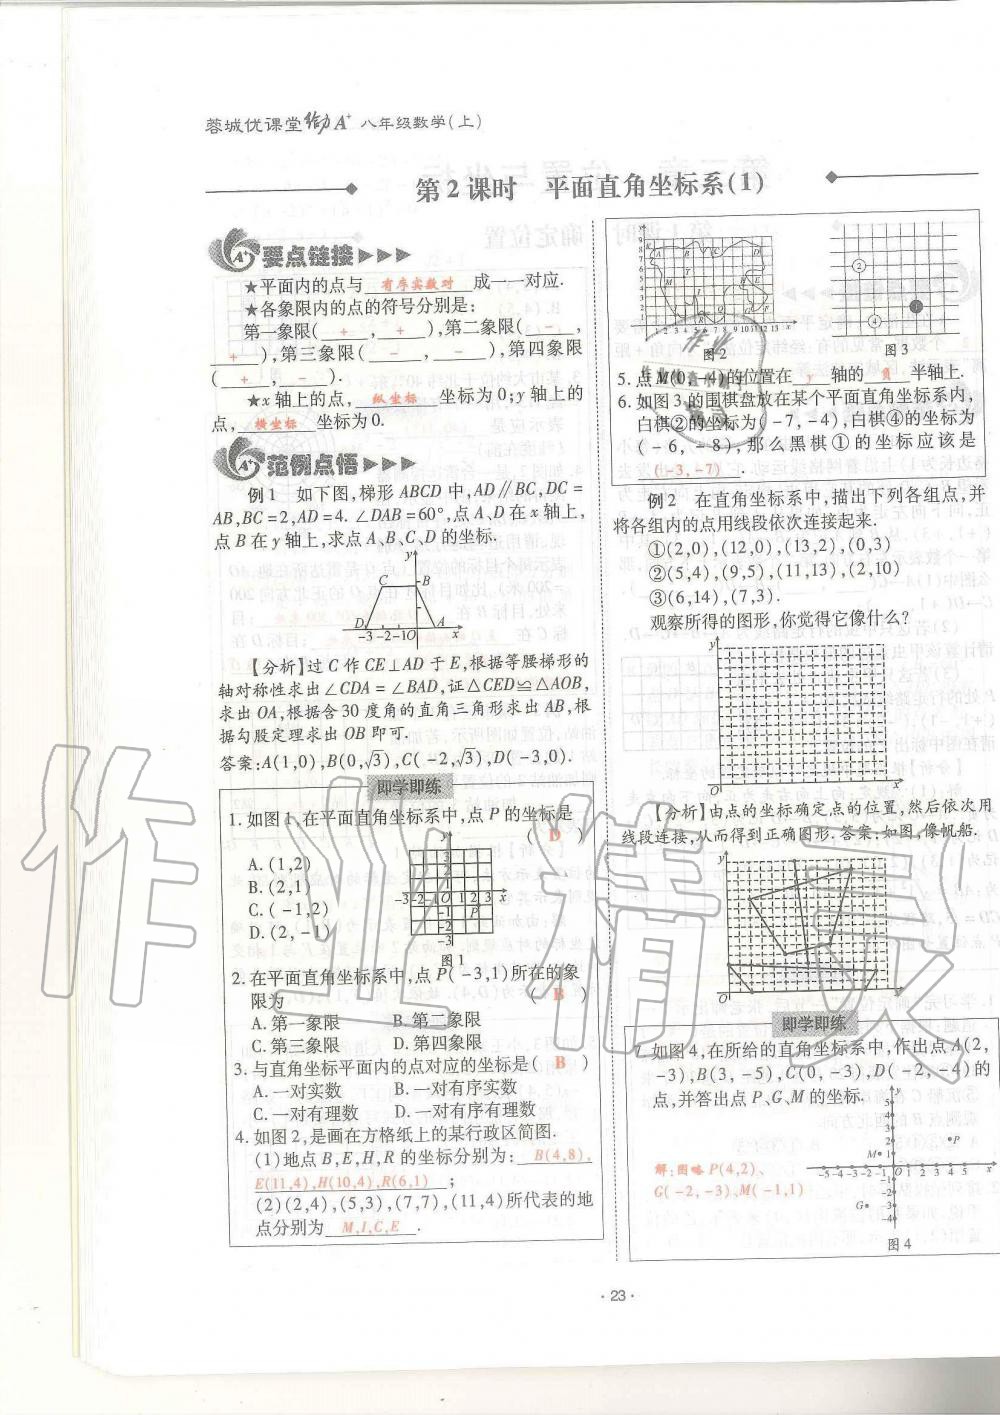 蓉城优课堂给力A+ 八年级数学(上)
第2课时 平面直角坐标系(1)
要点链接
★平面内的点与 有序实数对 成一一对应.
★各象限内的点的符号分别是:
第一象限( + , + ),第二象限( - ,
+ ),第三象限( - , - ),第四象限
( + , - ).
★x轴上的点, 纵坐标 坐标为0;y轴上的
点, 横坐标 坐标为0.
范例点悟
例1 如下图,梯形ABCD中,AD∥BC,DC=
AB,BC=2,AD=4.∠DAB=60°,点A、D在x轴上,
点B在y轴上,求点A、B、C、D的坐标.
y
C B
D A
-3-2-1O x
【分析】过C作CE⊥AD于E,根据等腰梯形的
轴对称性求出∠CDA=∠BAD,证△CED≌△AOB,
求出OA,根据含30度角的直角三角形求出AB,根
据勾股定理求出OB即可.
答案:A(1,0),B(0,√3),C(-2,√3),D(-3,0).
即学即练
1.如图1,在平面直角坐标系中,点P的坐标是
( D )
A.(1,2)
B.(2,1)
C.(-1,2)
D.(2,-1)
图1
2.在平面直角坐标系中,点P(-3,1)所在的象
限为 ( B )
A.第一象限 B.第二象限
C.第三象限 D.第四象限
3.与直角坐标平面内的点对应的坐标是( B )
A.一对实数 B.一对有序实数
C.一对有理数 D.一对有序有理数
4.如图2,是画在方格纸上的某行政区简图.
(1)地点B,E,H,R的坐标分别为: B(4,8),
E(11,4),H(10,4),R(6,1) ;
(2)(2,4),(5,3),(7,7),(11,4)所代表的地
点分别为 M,I,C,E .
图2
图3
5.点M(0,-4)的位置在 y 轴的 负 半轴上.
6.如图3的围棋盘放在某个平面直角坐标系内,
白棋②的坐标为(-7,-4),白棋④的坐标为
(-6,-8),那么黑棋①的坐标应该是
(-3,-7)
例2 在直角坐标系中,描出下列各组点,并
将各组内的点用线段依次连接起来.
①(2,0),(12,0),(13,2),(0,3)
②(5,4),(9,5),(11,13),(2,10)
③(6,14),(7,3).
观察所得的图形,你觉得它像什么?
y
O x
【分析】由点的坐标确定点的位置,然后依次用
线段连接,从而得到正确图形.答案:如图,像帆船.
y
O x
即学即练
7.如图4,在所给的直角坐标系中,作出点A(2,
-3),B(3,-5),C(0,-3),D(-2,-4)的
点,并答出点P、G、M的坐标.
解:图略 P(4,2)、
G(-2,-3)、M(-1,1)
图4
·23·
作业精灵